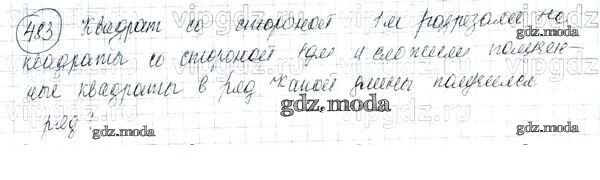 483 Квадрат со стороной 1м разрезали на
квадраты со стороной 1дм и сложили получен-
ные квадраты в ряд. Какой длины получился
gdz.moscow
ряд?
gdz.moscow
gdz.moscow